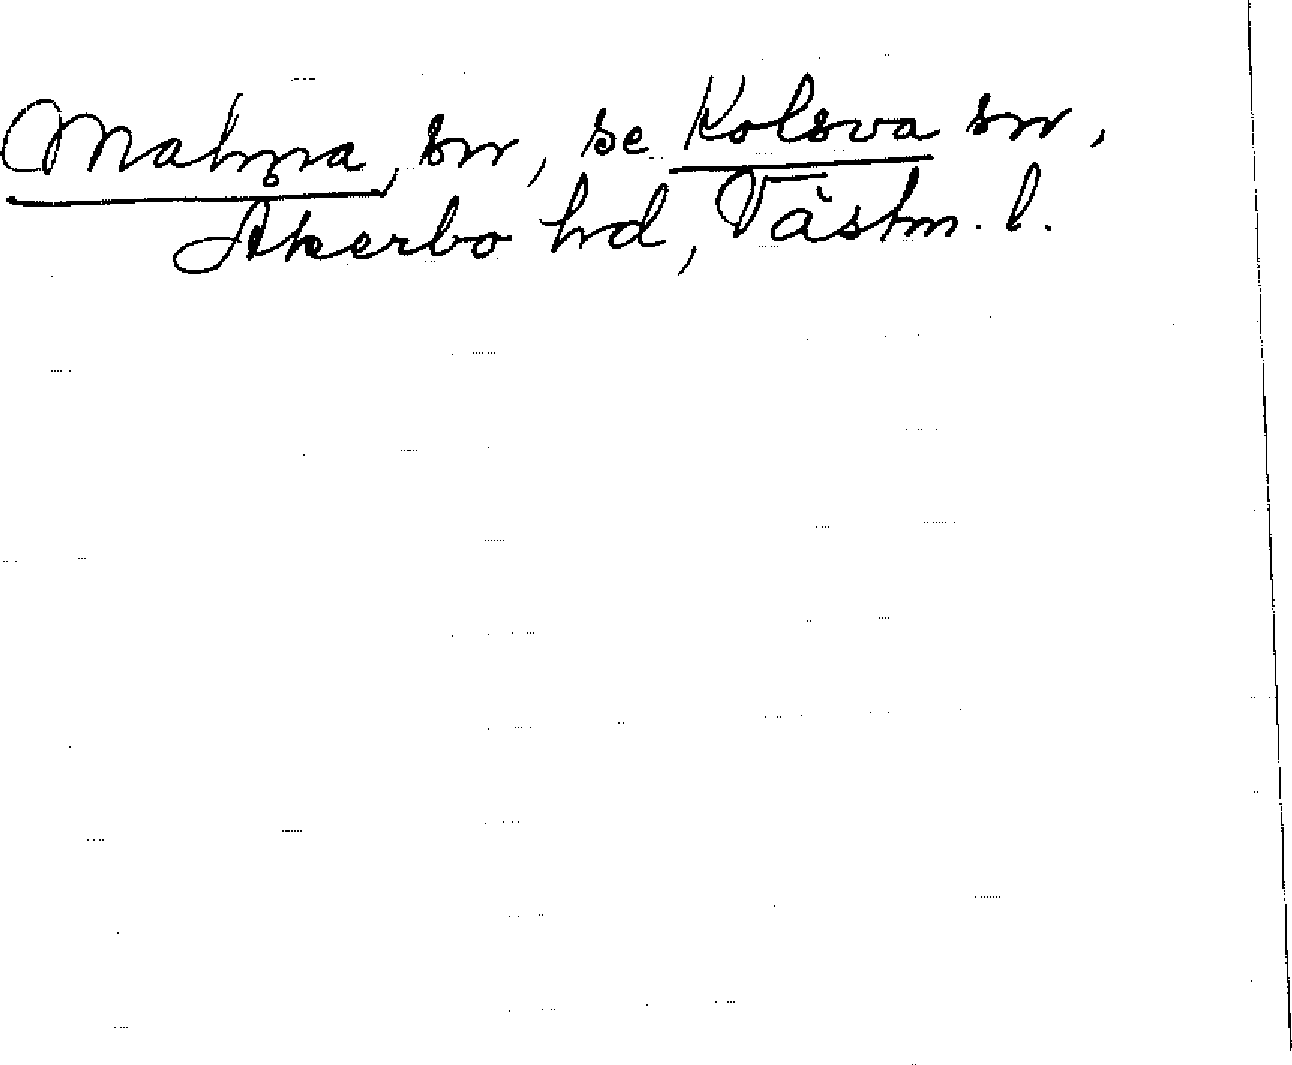 Malma, sn, se Kolsva sn,
Åkerbo hd, Västm. l.